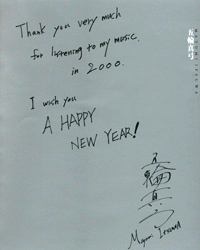 Thank you very much
for listening to my music
in 2000.
I wish you
A HAPPY
NEW YEAR!
五輪真弓
五輪真弓
Mayumi Itsuwa